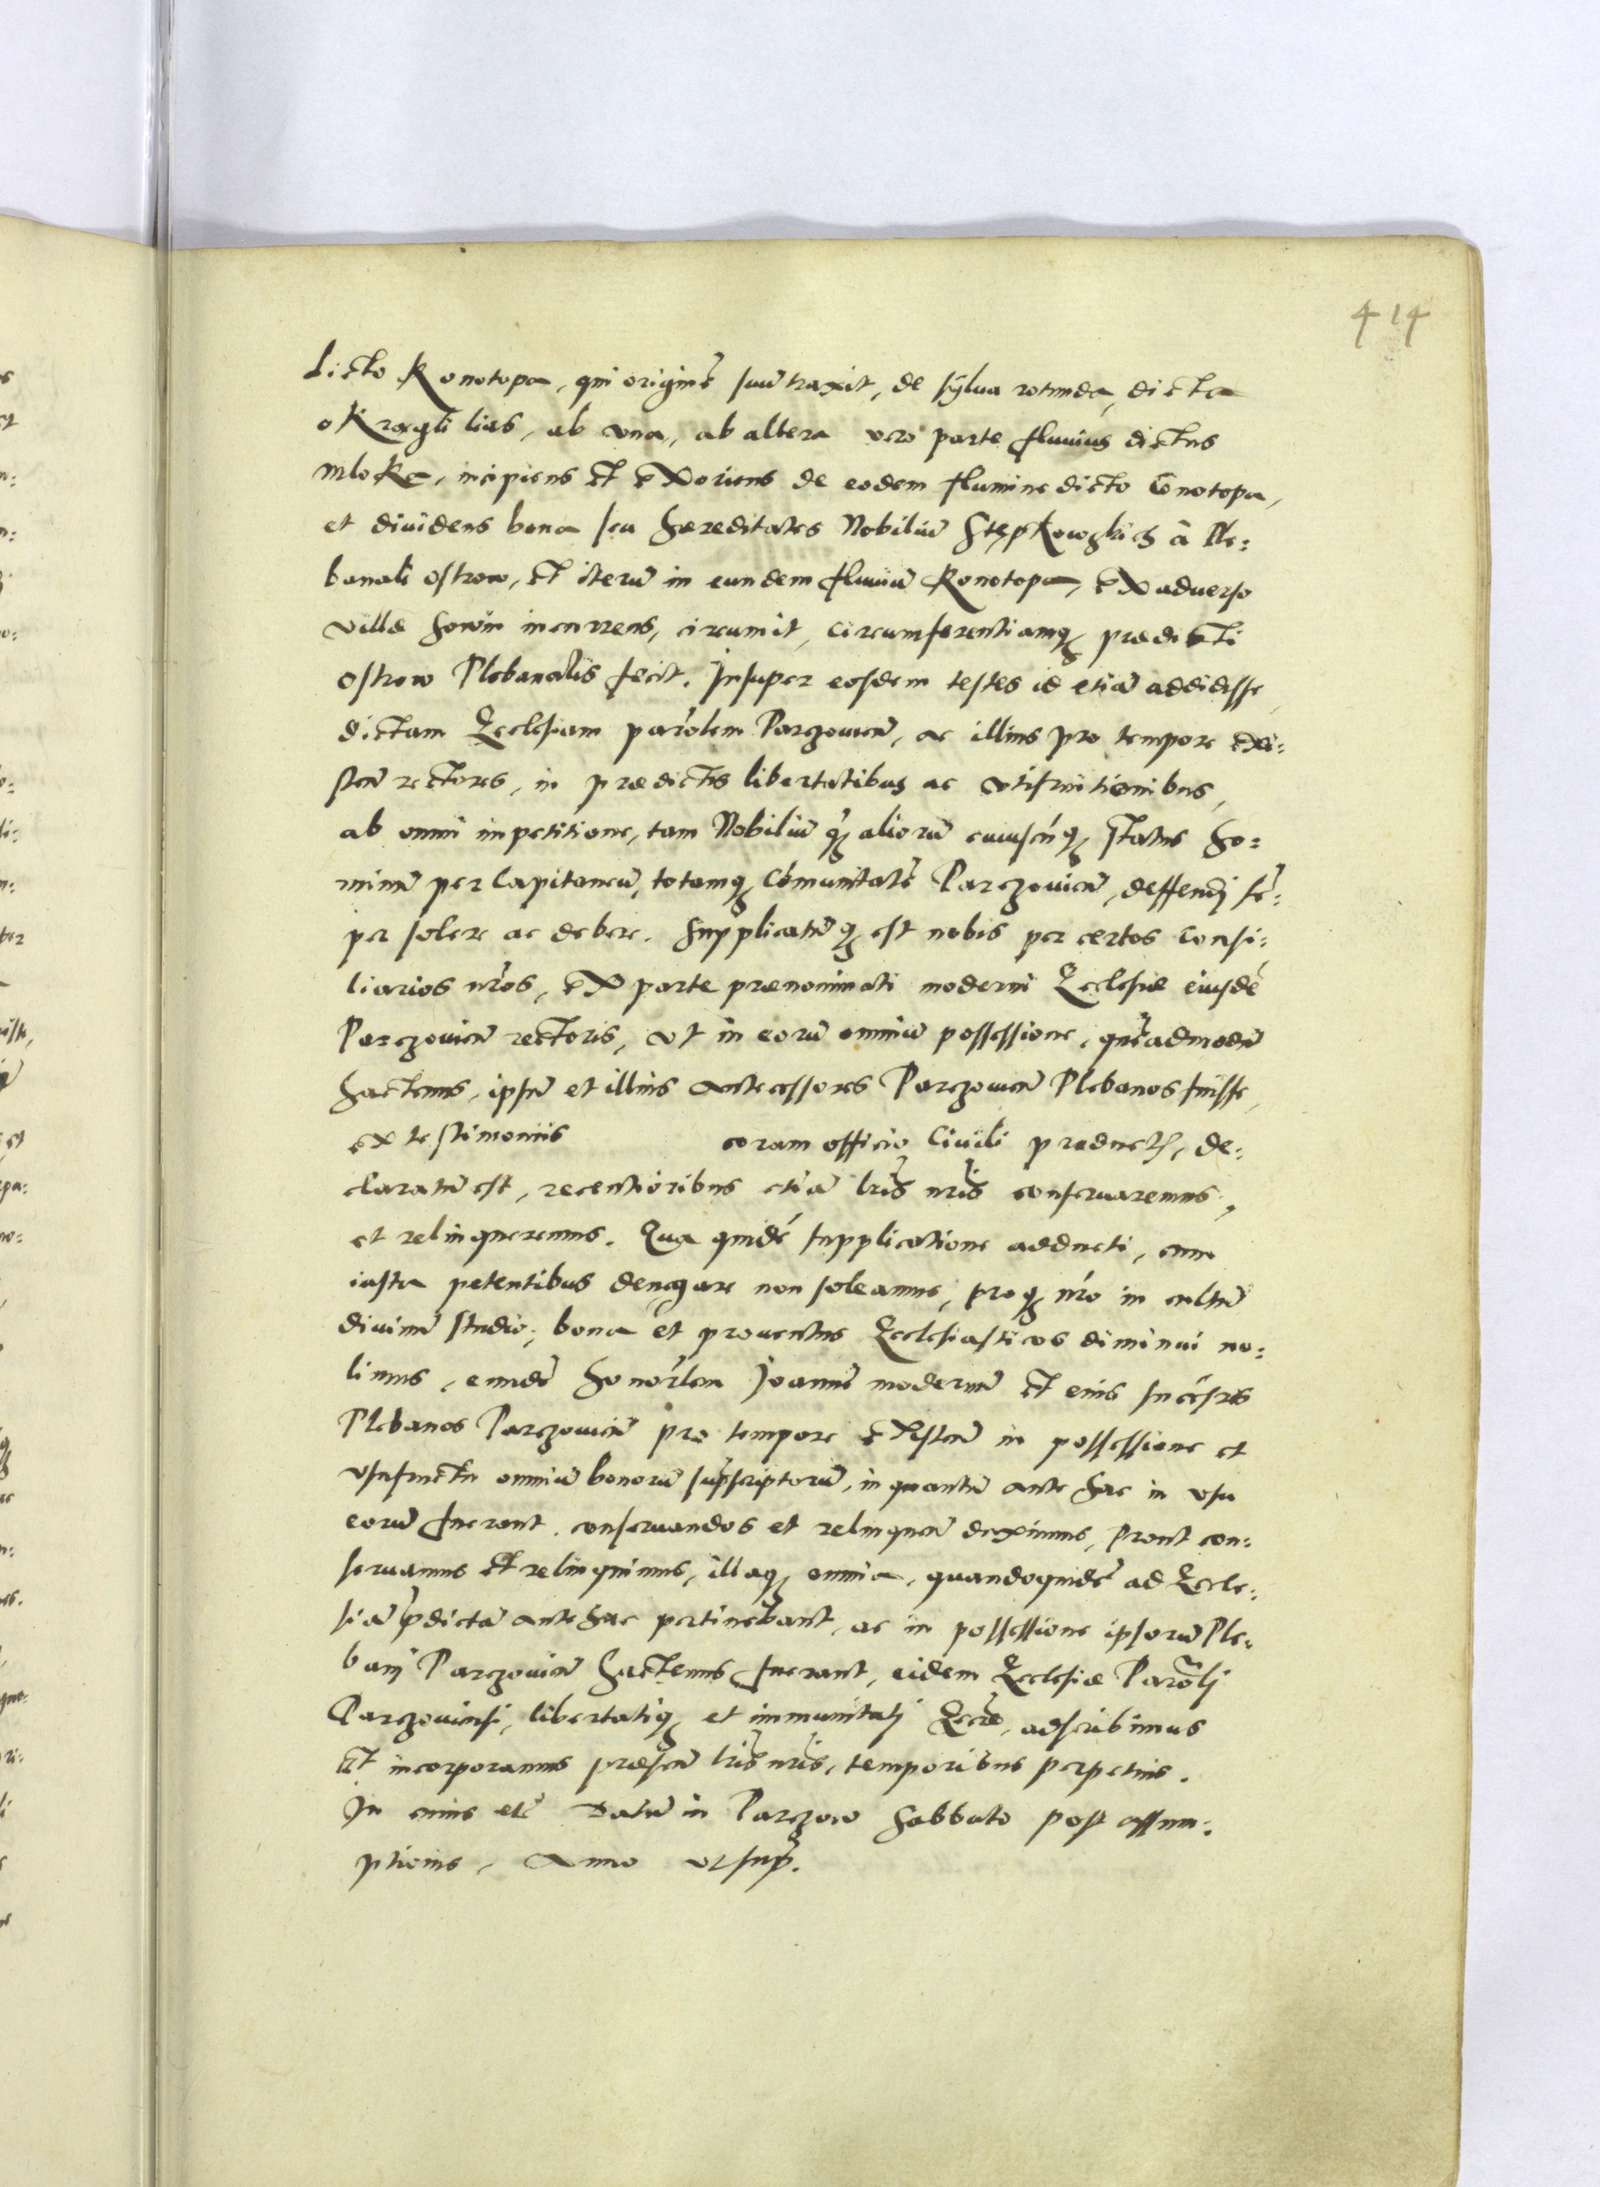 414
dicto Konotopa, qui originẽ suũ traxit, de sylva rotunda, dicta
okrągli lias, ab vna, ab altera vero parte fluvius dictus
mloke, incipiens et exoriens de eodem flumine dicto Conotopa,
et diuidens bona seu hæreditates Nobiliũ Stępkowskich à Ple:
banali ostrow, et iterũ in eundem fluuiũ Konotopa, ex aduerso
villæ Sowin incurrens, circumit, circumferentiamq; prædicti
ostrow Plebanalis fecit. Insuper eosdem testes id etiã addidisse,
dictam Ecclesiam parõlem Parczovieñ, ac illius pro tempore exi:
steñ rectores, in prædictis libertatibus ac vtifruitionibus,
ab omni impetitione, tam Nobiliũ q̃ aliorũ cuiuscũq; status ho:
minũ per Capitaneũ, totamq; Cõmunitatẽ Parczovieñ, deffendj sẽ:
per solere ac debere. Supplicatũq; est nobis per certos Consi:
liarios nr̃os, ex parte prænominati moderni Ecclesiæ eiusdẽ
Parczovieñ rectoris, vt in eorũ omniũ possessione, quẽadmodũ
hactenus, ipsũ et illius antecessores Parczovieñ Plebanos fuisse,
ex testimoniis coram officio Ciuili product, de:
claratũ est, recentioribus etiã lr̃is nr̃is conseruaremus,
et relinqueremus. Qua quidẽ supplicatione adducti, cum
iusta petentibus denegare non soleamus, proq; nr̃o in cultũ
diuinũ studio, bona et prouentus Ecclesiasticos diminui no:
limus, eundẽ honorãlem Joannẽ modernũ et eius succẽsres
Plebanos Parczovieñ pro tempore existeñ in possessione et
vsufructu omniũ bonorũ suprãscriptorũ, in quantũ ante hac in vsu
eorũ fuerant, conseruandos et relinqueñ duximus, prout con:
seruamus et relinquimus, illaq; omnia, quandoquidẽ ad Eccle:
siã p̃dictã ante hac pertinebant, ac in possessione ipsorũ Ple:
banj Parczovieñ hactenus fuerant, eidem Ecclesiæ Parõlj
Parczoviensi, libertatiq; et immunitatj Eccl̃æ, adscribimus
et incorporamus præseñ lr̃is nr̃is, temporibus perpetuis.
In cuius etc̃ Datũ in Parczow Sabbato post assum:
ptionis, Anno vt sup̃.